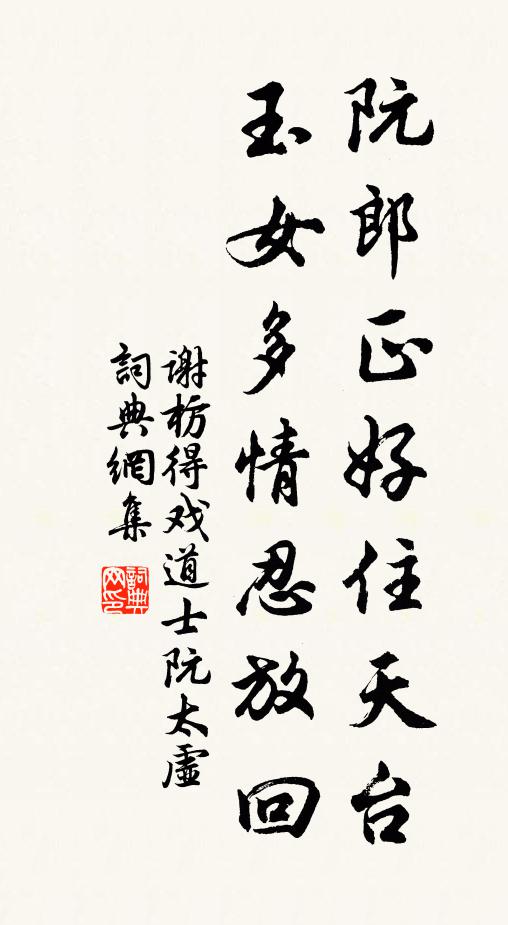 阮郎正好住天台
玉女多情忍放回
谢枋得戏道士阮太虚
詞典網集
詞典网印